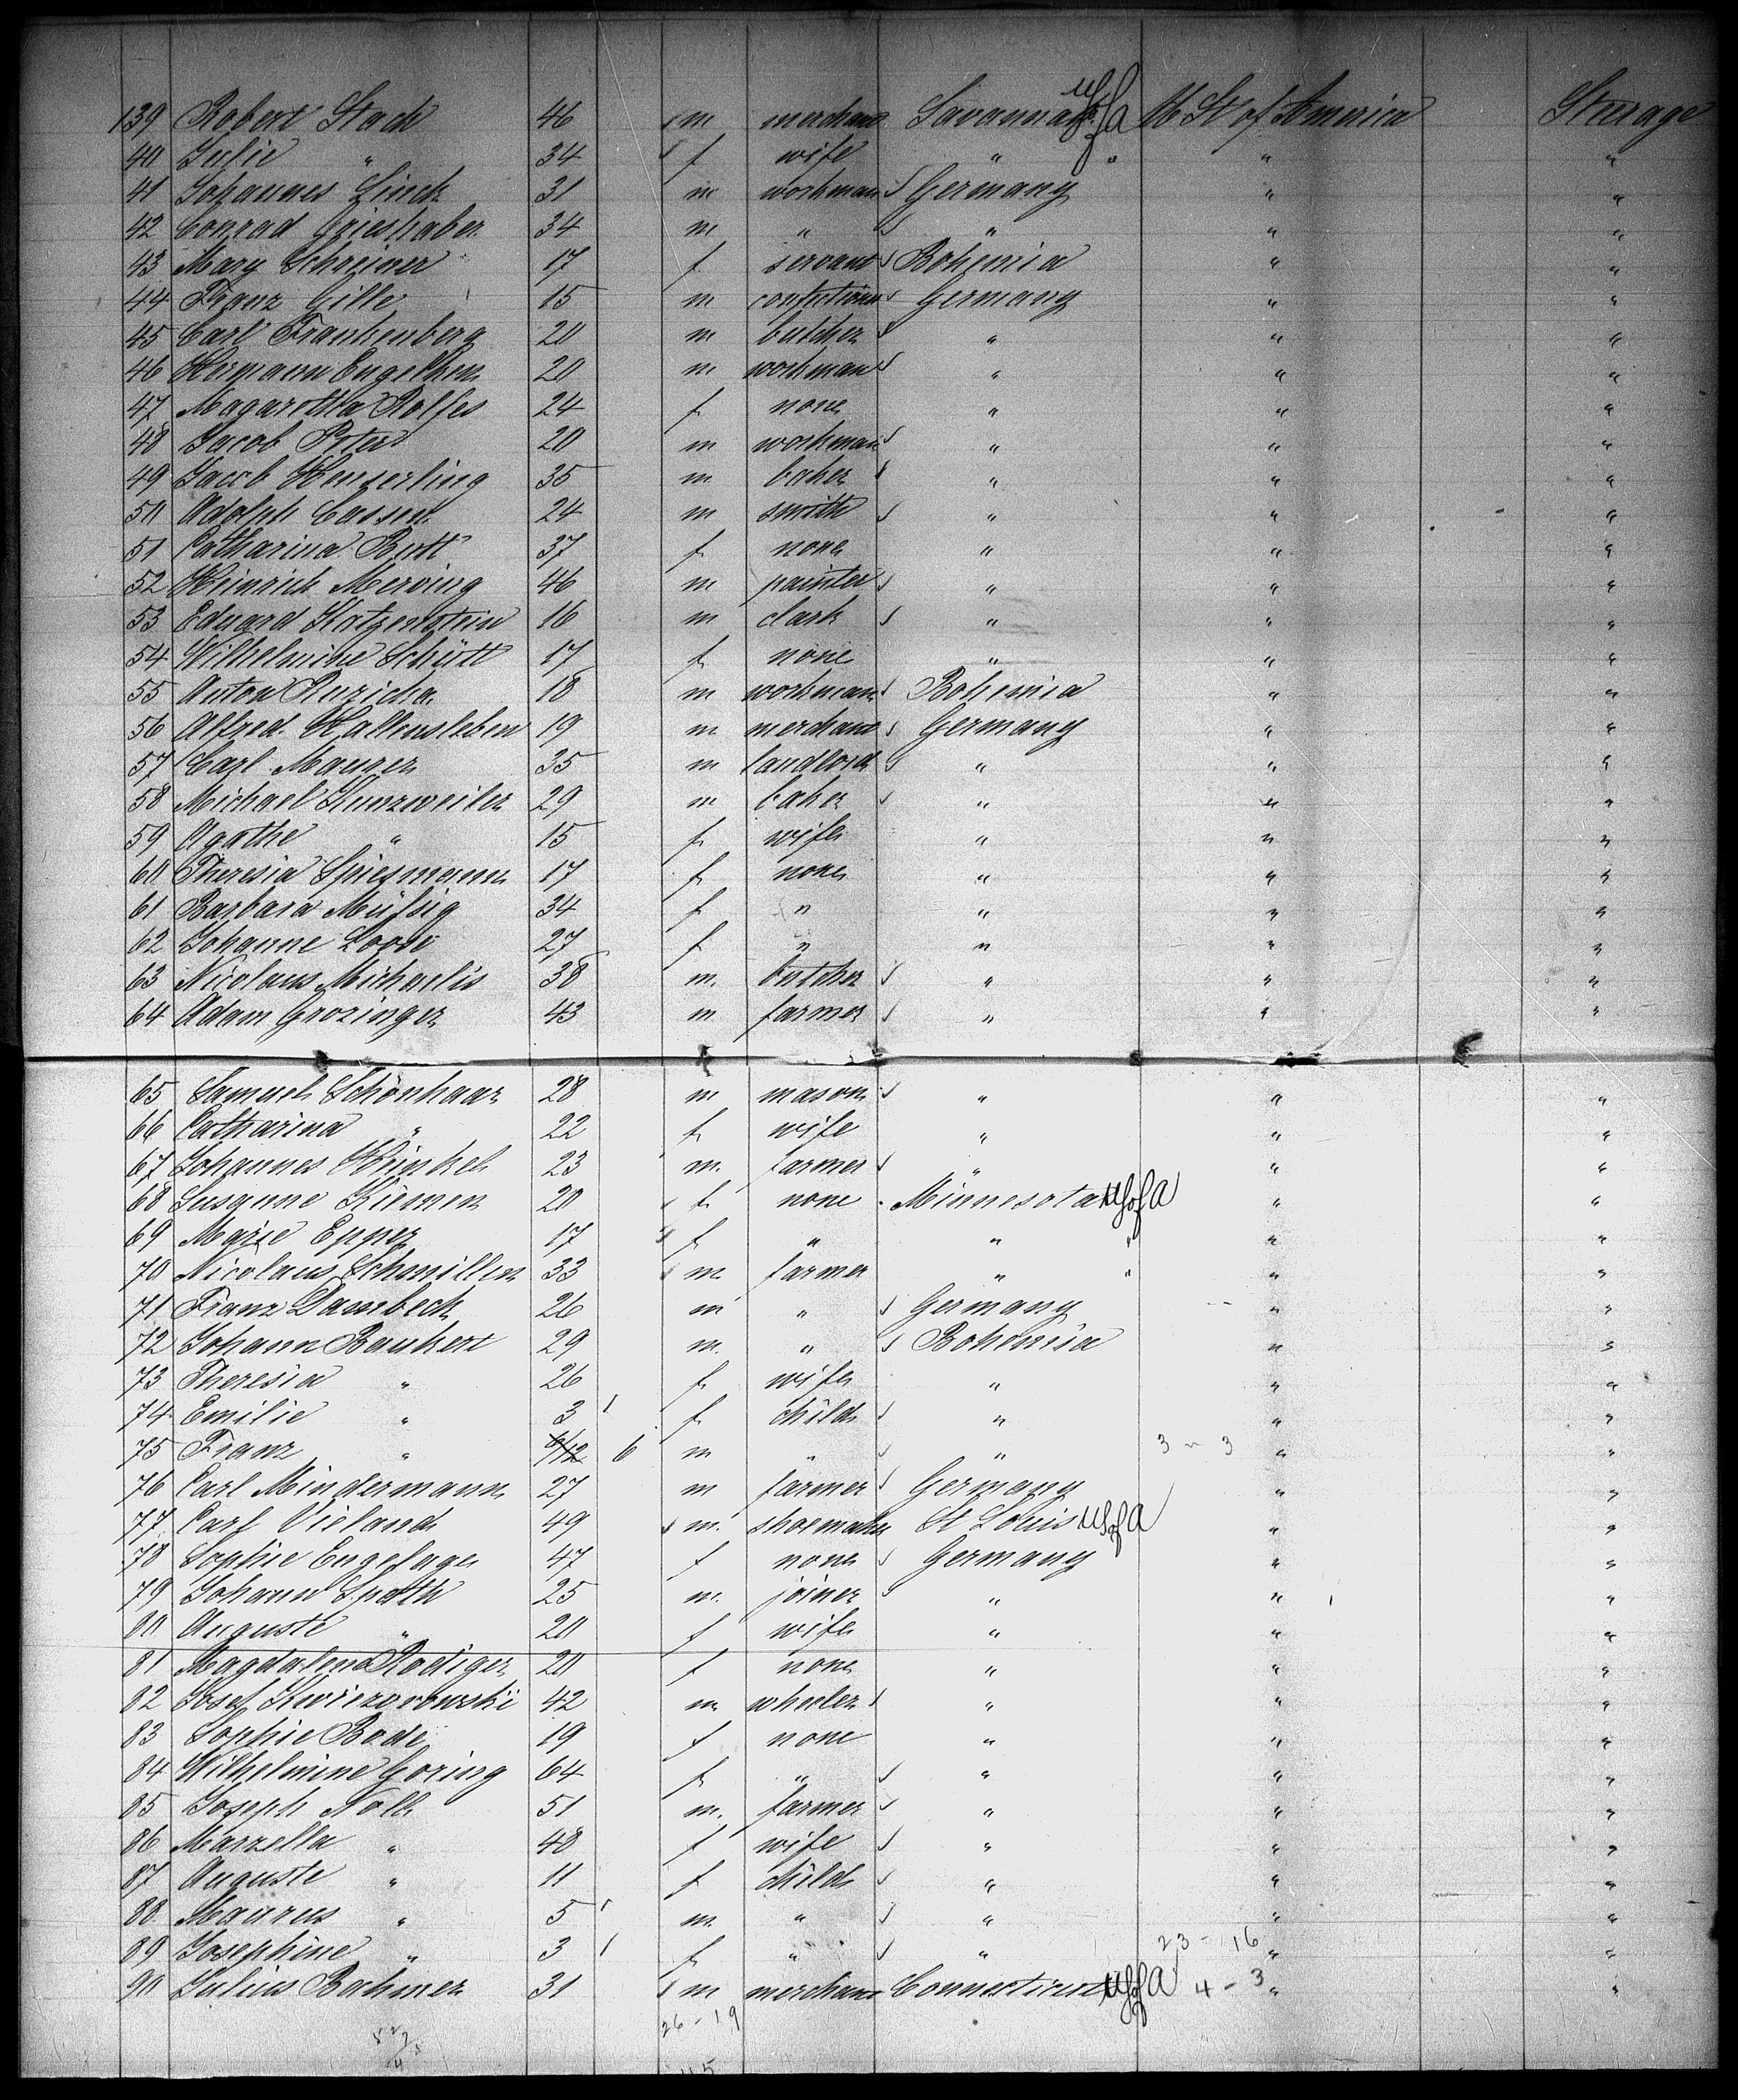 139 Robert Stach 46 m merchant Savannah U S of A U St of America Steerage
40 Julie " 34 f wife " " " "
41 Johannes Linck 31 m workman Germany " "
42 Conrad Grieshaber 34 m " " " "
43 Mary Schreiner 17 f servant Bohemia " "
44 Franz Gille 15 m confection Germany " "
45 Carl Frankenberg 20 m butcher " " "
46 Hermann Engelken 20 m workman " " "
47 Magaretha Rolfes 24 f none " " "
48 Jacob Peter 20 m workman " " "
49 Jacob Henserling 35 m baker " " "
50 Adolph Cassen 24 m smith " " "
51 Catharina Butt 37 f none " " "
52 Heinrich Merving 46 m painter " " "
53 Eduard Katzenstein 16 m clark " " "
54 Wilhelmine Schütt 17 f none " " "
55 Anton Ruzicha 18 m workman Bohemia " "
56 Alfred Hallensleben 19 m merchant Germany " "
57 Carl Manger 35 m landlord " " "
58 Michael Kunzweiler 29 m baker " " "
59 Agathe " 15 f wife " " "
60 Theresia Spiesmann 17 f none " " "
61 Barbara Müssig 34 f " " " "
62 Johanne Loose 27 f " " " "
63 Nicolaus Michaelis 38 m. butcher " " "
64 Adam Grozinger 43 m farmer " " "
65 Samuel Schönhaar 28 m mason " " "
66 Catharina " 22 f wife " " "
67 Johannes Hünkel 23 m. farmer " " "
68 Susanne Kiemen 20 f none Minnesota U S of A " "
69 Marie Epper 17 f " " " " "
70 Nicolaus Schmillen 33 m farmer " " " "
71 Franz Dambeck 26 m " Germany " "
72 Johann Baukert 29 m. " Bohemia " "
73 Theresia " 26 f wife " " "
74 Emilie " 3 f child " " "
75 Franz " 6/12 6 m " " 3 - 3 " "
76 Carl Mindermann 27 m farmer Germany " "
77 Carl Vieland 49 m. shoemaker St Louis U S of A " "
78 Sophie Engelage 47 f none Germany " "
79 Johann Spath 25 m. joiner " " "
80 Auguste " 20 f wife " " "
81 Magdalena Rodiger 20 f none " " "
82 Josef Kwiezorowski 42 m wheeler " " "
83 Sophie Bode 19 f none " " "
84 Wilhelmine Göring 64 f " " " "
85 Joseph Noll 51 m. farmer " " "
86 Marzella " 48 f wife " " "
87 Auguste " 11 f child " " "
88 Maurus " 5 m. " " " "
89 Josephine " 3 f " " 23 - 16 " "
90 Julius Bohmer 31 m merchant Connecticut U S of A 4 - 3 " "
26 - 19